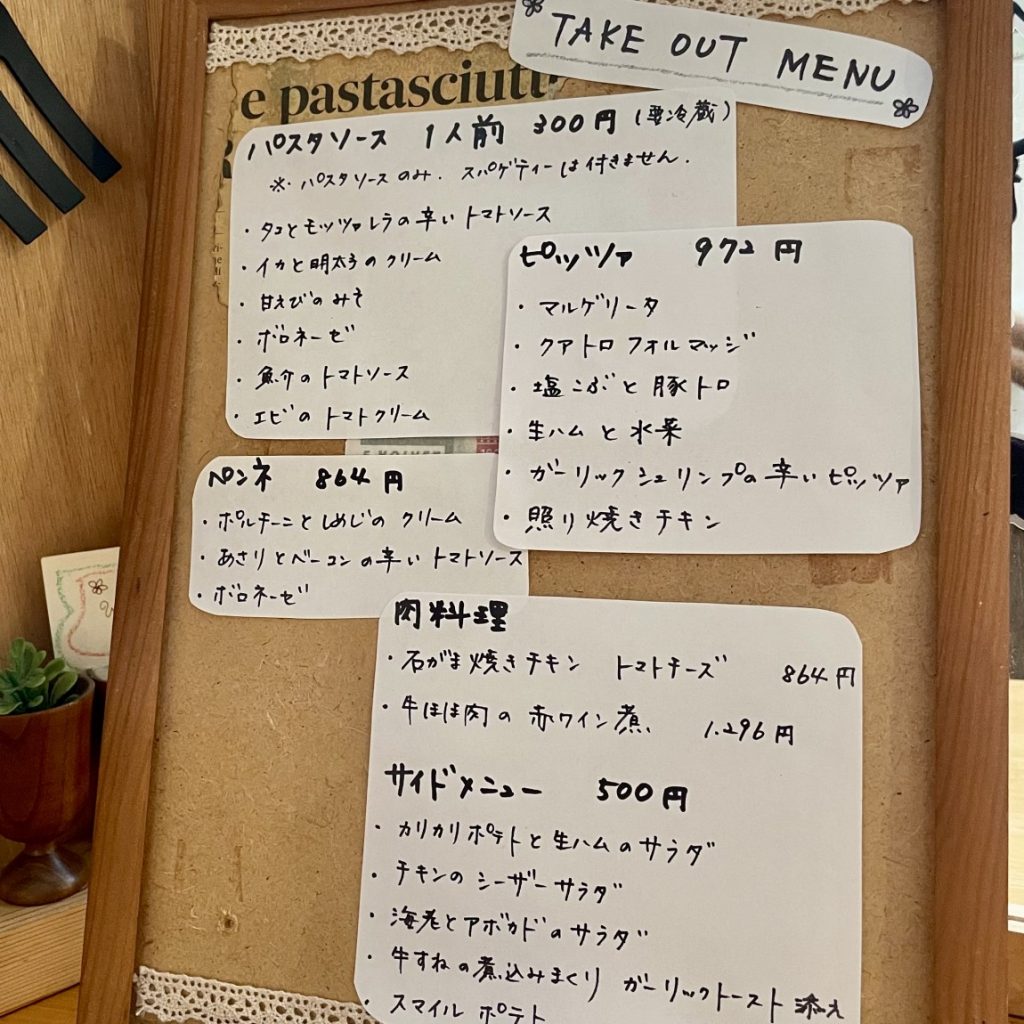 TAKE OUT MENU
e pastasciutt
パスタソース 1人前 300円(要冷蔵)
※. パスタソースのみ. スパゲティーは付きません.
・タコとモッツァレラの辛いトマトソース
・イカと明太子のクリーム
・甘えびのみそ
・ボロネーゼ
・魚介のトマトソース
・エビのトマトクリーム
ピッツァ 972円
・マルゲリータ
・クアトロフォルマッジ
・塩こぶと豚トロ
・生ハムと水菜
・ガーリックシュリンプの辛いピッツァ
・照り焼きチキン
ペンネ 864円
・ポルチーニとしめじのクリーム
・あさりとベーコンの辛いトマトソース
・ボロネーゼ
肉料理
・石がま焼きチキン トマトチーズ 864円
・牛ほほ肉の赤ワイン煮 1.296円
サイドメニュー 500円
・カリカリポテトと生ハムのサラダ
・チキンのシーザーサラダ
・海老とアボカドのサラダ
・牛すねの煮込みまくり ガーリックトースト添え
・スマイルポテト